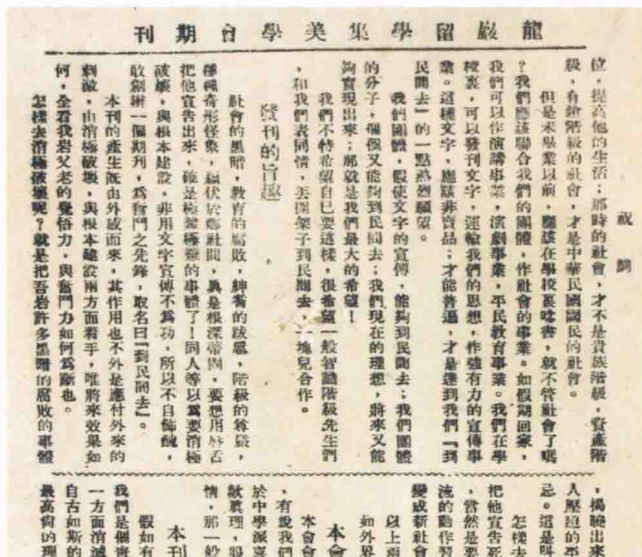 龍巖留學集美學白期刊
祝詞
位,提高他的生活;那時的社會,才不是貴族階級,資產階
級,有鎗階級的社會,才是中華民國國民的社會。
但是未畢業以前,應該在學校裏唸書,就不管社會了嗎
?我們應該聯合我們的團體,作社會的事業。如假期回家,
我們可以作演講事業,演劇事業,平民教育事業。我們在學
校裏,可以發刊文字,運輸我們的思想,作強有力的宣傳事
業。這樣文字,應該非賣品;才能普遍,才是達到我們『到
民間去』的一點熱烈願望。
我們團體,假使文字的宣傳,能夠到民間去;我們團體
的分子,個個又能夠到民間去;我們現在的理想,將來又能
夠實現出來;那就是我們最大的希望!
我們不特希望自己要這樣,很希望一般智識階級先生們
,和我們表同情,丟掉架子到民間去,一塊兒合作。
發刊的旨趣
社會的黑暗,教育的腐敗,紳耆的跋扈,階級的尊嚴,
種種奇形怪象,蘊伏於鄉社間,眞是根深帝固,要想用唇舌
把他宣告出來,確是極疑極難的事體了!同人等以爲要消極
破壞,與根本建設,非用文字宣傳不爲功,所以不自飾醜,
敢創辦一個期刊,爲奮鬥之先鋒,取名曰『到民間去』。
本刊的產生旣由外感而來,其作用也不外是應付外來的
刺激,由消極破壞,與根本建設兩方面着手,唯將來效果如
何,全看我岩父老的覺悟力,與奮鬥力如何爲斷也。
怎樣去消極破壞呢?就是把吾岩許多黑暗的腐敗的事體
,揭曉出來
人壓迫的
忌。這是
怎樣去
把他宣告死
,當然是要
流的動作習
變成新社會
以上兩
如外界
本會
本會會
,有說我們
於中學派
歉眞理,
情,那一般
本刊
假如有
我們是個
一方面消滅
自古如斯的
最高尚的理